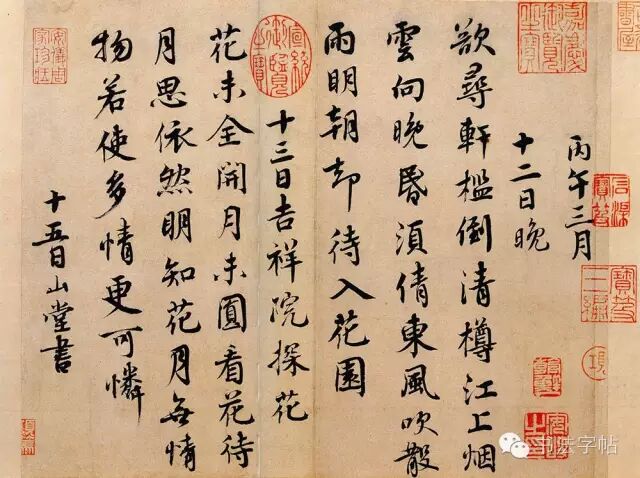 丙午三月
十二日晚
欲尋軒檻倒清樽江上烟
雲向晚昏須倩東風吹散
雨明朝却待入花園
十三日吉祥院探花
花未全開月未圓看花待
月思依然明知花月無情
物若使多情更可憐
十五日山堂書
書法字帖